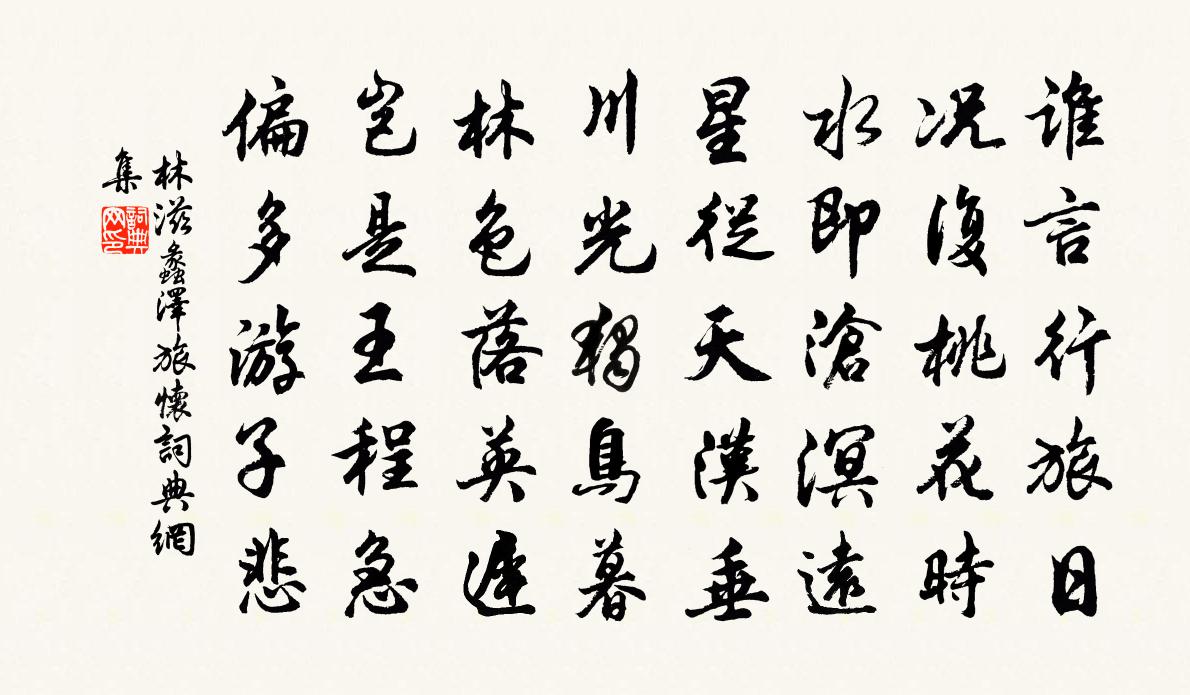 谁言行旅日
况復桃花時
水即滄溟遠
星從天漢垂
川光獨鳥暮
林色落英遲
岂是王程急
偏多游子悲
林滋蠡澤旅懷詞典網
集
詞典
网印